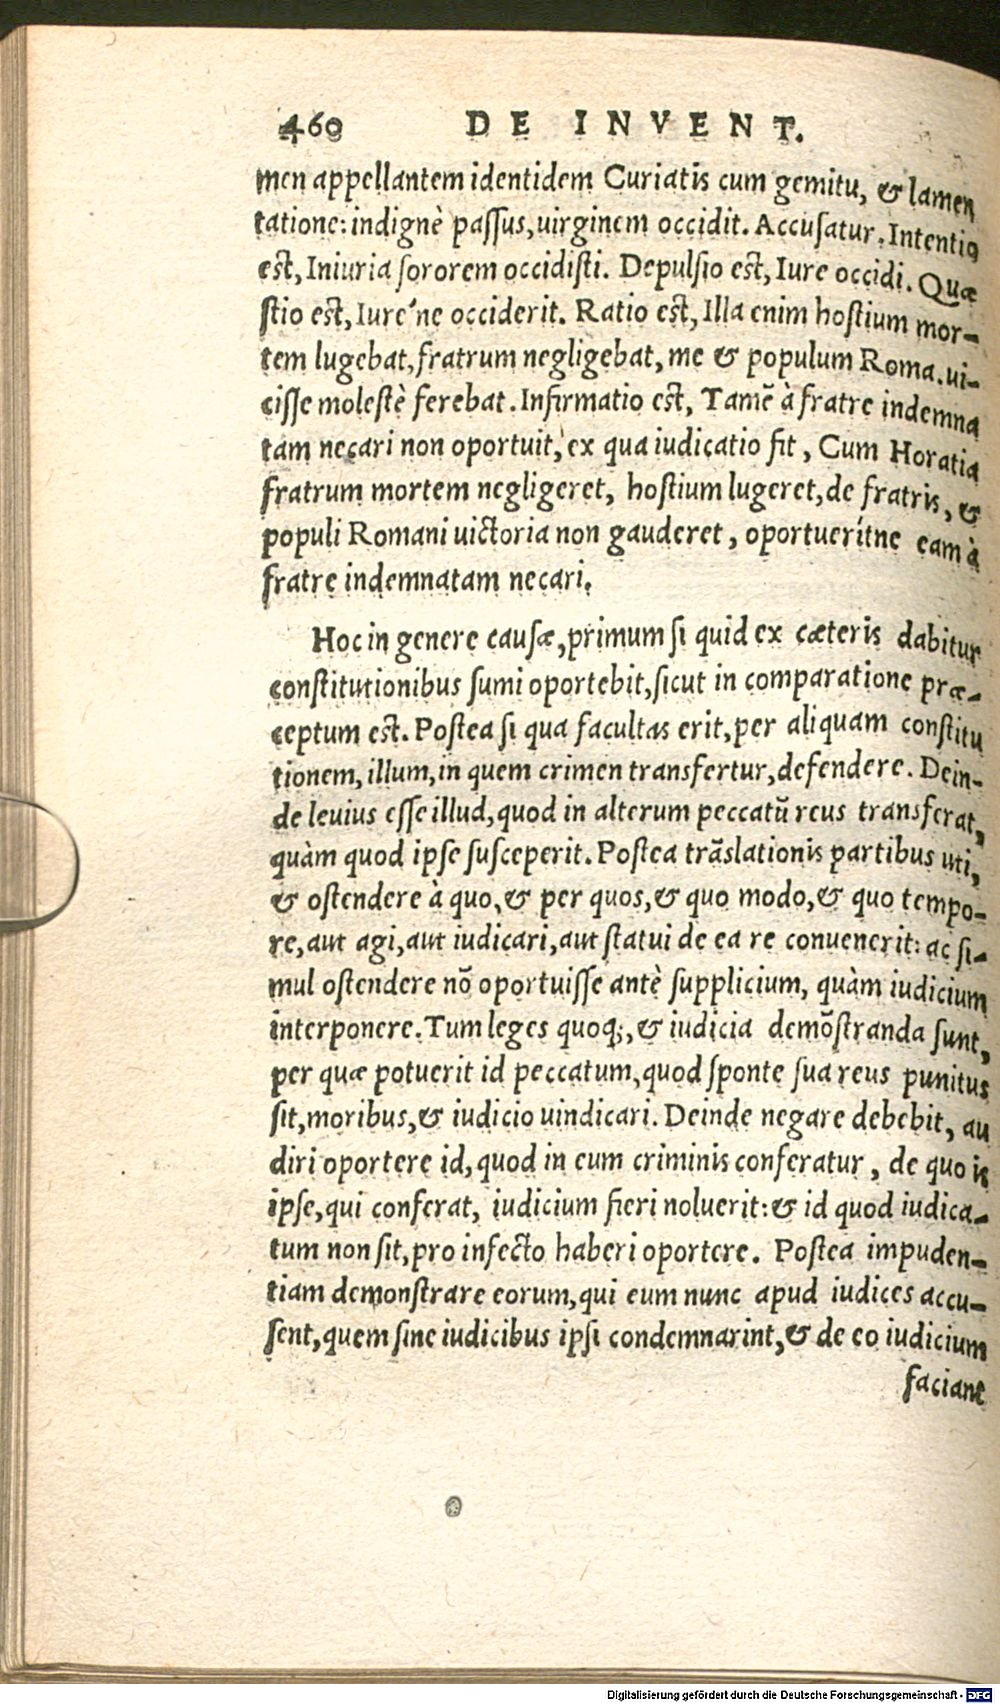 460 DE INVENT.
men appellantem identidem Curiatis cum gemitu, & lamen
tatione: indignè passus, uirginem occidit. Accusatur. Intentio
est, Iniuria sororem occidisti. Depulsio est, Iure occidi. Quæ
stio est, Iure´ne occiderit. Ratio est, Illa enim hostium mor-
tem lugebat, fratrum negligebat, me & populum Roma. ui-
cisse molestè ferebat. Infirmatio est, Tamē à fratre indemna
tam necari non oportuit, ex qua iudicatio fit, Cum Horatia
fratrum mortem negligeret, hostium lugeret, de fratris, &
populi Romani uictoria non gauderet, oportuerítne eam à
fratre indemnatam necari.
Hoc in genere causæ, primum si quid ex cæteris dabitur
constitutionibus sumi oportebit, sicut in comparatione præ-
ceptum est. Postea si qua facultas erit, per aliquam constitu
tionem, illum, in quem crimen transfertur, defendere. Dein-
de leuius esse illud, quod in alterum peccatū reus transferat,
quàm quod ipse susceperit. Postea trāslationis partibus uti,
& ostendere à quo, & per quos, & quo modo, & quo tempo-
re, aut agi, aut iudicari, aut statui de ea re conuenerit: ac si-
mul ostendere nō oportuisse antè supplicium, quàm iudicium
interponere. Tum leges quoq;, & iudicia demōstranda sunt,
per quæ potuerit id peccatum, quod sponte sua reus punitus
sit, moribus, & iudicio uindicari. Deinde negare debebit, au
diri oportere id, quod in eum criminis conferatur, de quo is
ipse, qui conferat, iudicium fieri noluerit: & id quod iudica-
tum non sit, pro infecto haberi oportere. Postea impuden-
tiam demonstrare eorum, qui eum nunc apud iudices accu-
sent, quem sine iudicibus ipsi condemnarint, & de eo iudicium
faciant
Digitalisierung gefördert durch die Deutsche Forschungsgemeinschaft - DFG